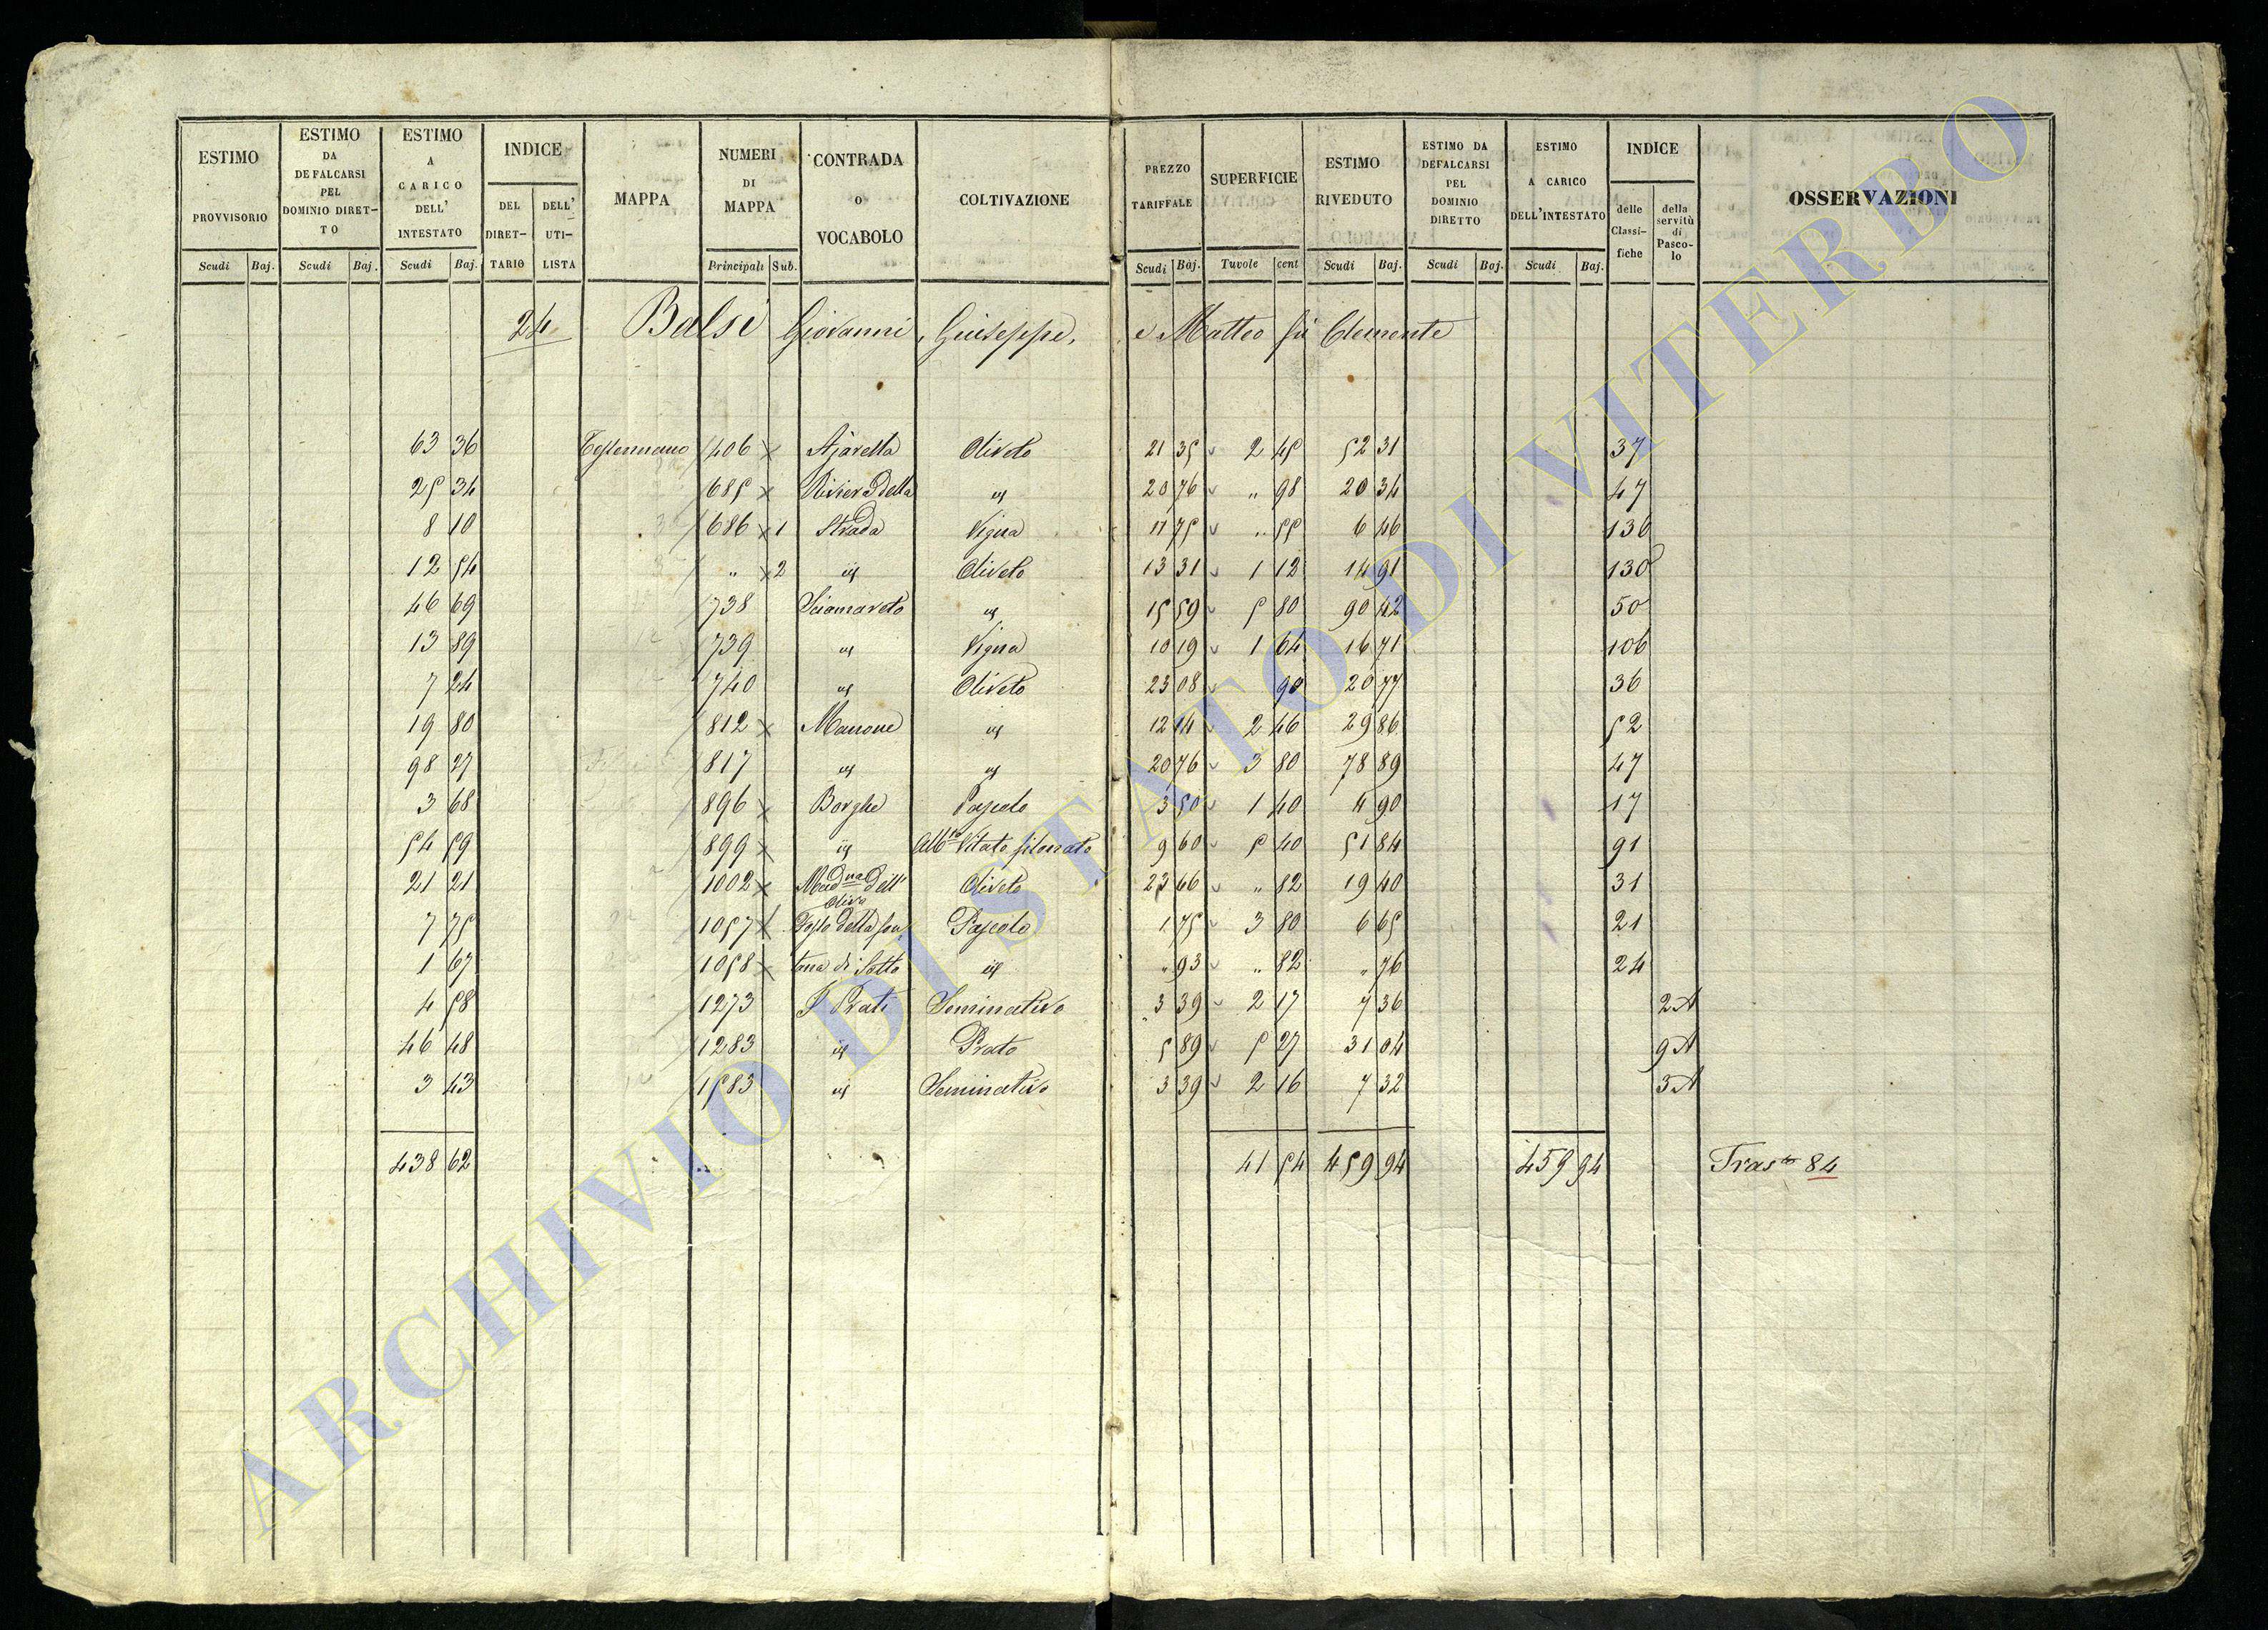 ESTIMO PROVVISORIO Scudi Baj.
ESTIMO DA DEFALCARSI PEL DOMINIO DIRET-TO Scudi Baj.
ESTIMO A CARICO DELL' INTESTATO Scudi Baj.
INDICE DEL DIRET-TARIO DELL' UTI-LISTA
MAPPA
NUMERI DI MAPPA Principali Sub.
CONTRADA O VOCABOLO
COLTIVAZIONE
PREZZO TARIFFALE Scudi Baj.
SUPERFICIE Tavole cent
ESTIMO RIVEDUTO Scudi Baj.
ESTIMO DA DEFALCARSI PEL DOMINIO DIRETTO Scudi Baj.
ESTIMO A CARICO DELL'INTESTATO Scudi Baj.
INDICE delle Classi-fiche della servitù di Pasco-lo
OSSERVAZIONI
24 Balsi Giovanni, Giuseppe, e Matteo fu Clemente
63 36 1406 x Ajaretta Oliveto 21 35 2 45 52 31 37
25 34 685 x Riviera della id 20 76 " 98 20 34 47
8 10 686 x 1 Strada Vigna 11 75 " 55 6 46 136
12 54 " x 2 id Oliveto 13 31 1 12 14 91 130
46 69 738 Sciamareto id 15 59 5 80 90 42 50
13 89 739 id Vigna 10 19 1 64 16 71 106
7 24 740 id Oliveto 23 08 90 20 77 36
19 80 812 x id 12 14 2 46 29 86 52
98 27 817 id id 20 76 3 80 78 89 47
3 68 896 x Borghe Pascolo 3 50 1 40 4 90 17
54 59 899 x id Albto Vitato filonato 9 60 5 40 51 84 91
21 21 1002 x Madna dell' Oliva Oliveto 23 66 " 82 19 40 31
7 75 1057 x Fosso della fon Pascolo 1 75 3 80 6 65 21
1 67 1058 x tana di Sotto id " 93 " 82 " 76 24
4 58 1273 I Prati Seminativo 3 39 2 17 7 36 2A
46 48 1283 id Prato 5 89 5 27 31 04 9A
3 43 1583 id Seminativo 3 39 2 16 7 32 3A
438 62 41 54 459 94 459 94 Trasto 84
ARCHIVIO DI STATO DI VITERBO